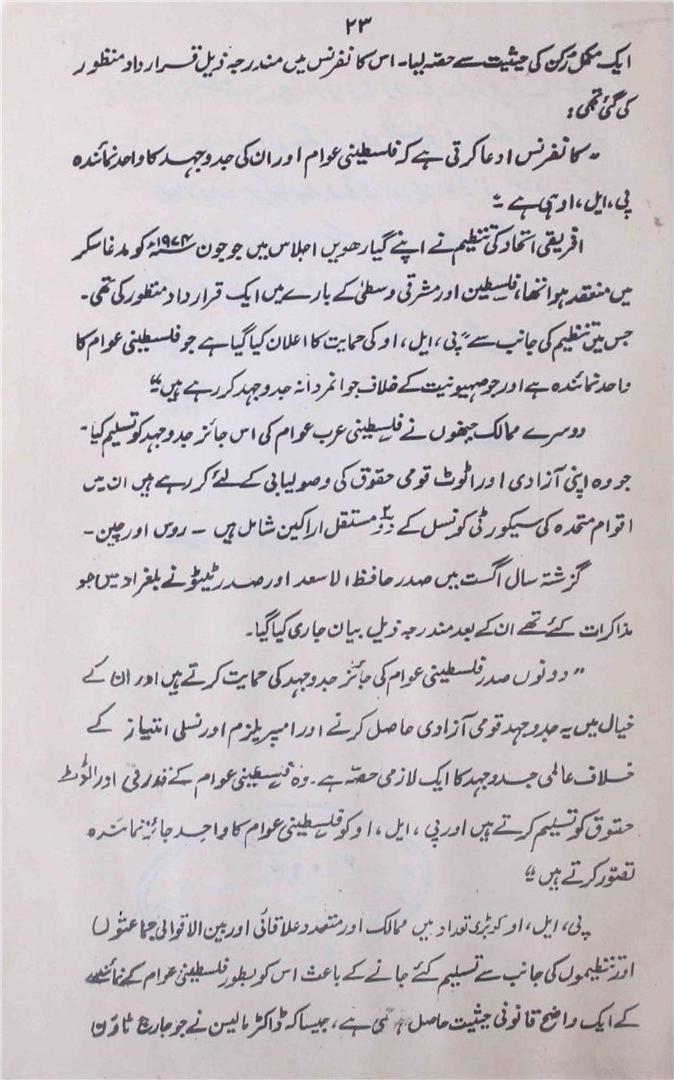 ۲۳
ایک مکمل رکن کی حیثیت سے حصہ لیا۔ اس کانفرنس میں مندرجہ ذیل قرارداد منظور
کی گئی تھی:
”کانفرنس ادعا کرتی ہے کہ فلسطینی عوام اور ان کی جدوجہد کا واحد نمائندہ
پی، ایل، او ہی ہے۔“
افریقی اتحاد کی تنظیم نے اپنے گیارھویں اجلاس میں جو جون ۱۹۷۴ء کو مدغاسکر
میں منعقد ہوا تھا، فلسطین اور مشرق وسطیٰ کے بارے میں ایک قرارداد منظور کی تھی۔
جس میں تنظیم کی جانب سے ”پی، ایل، او کی حمایت کا اعلان کیا گیا ہے جو فلسطینی عوام کا
واحد نمائندہ ہے اور جو صہیونیت کے خلاف جوانمردانہ جدوجہد کر رہے ہیں“
دوسرے ممالک جنھوں نے فلسطینی عرب عوام کی اس جائز جدوجہد کو تسلیم کیا۔
جو وہ اپنی آزادی اور اٹوٹ قومی حقوق کی وصولیابی کے لئے کر رہے ہیں ان میں
اقوام متحدہ کی سیکورٹی کونسل کے دو مستقل اراکین شامل ہیں ۔ روس اور چین۔
گزشتہ سال اگست میں صدر حافظ الاسعد اور صدر ٹیٹو نے بلغراد میں جو
مذاکرات کئے تھے ان کے بعد مندرجہ ذیل بیان جاری کیا گیا۔
”دونوں صدر فلسطینی عوام کی جائز جدوجہد کی حمایت کرتے ہیں اور ان کے
خیال میں یہ جدوجہد قومی آزادی حاصل کرنے اور امپریلزم اور نسلی امتیاز کے
خلاف عالمی جدوجہد کا ایک لازمی حصہ ہے۔ وہ فلسطینی عوام کے قدرتی اور اٹوٹ
حقوق کو تسلیم کرتے ہیں اور پی، ایل، او کو فلسطینی عوام کا واحد جائز نمائندہ
تصور کرتے ہیں“
پی، ایل، او کو بڑی تعداد میں ممالک اور متعدد علاقائی اور بین الاقوامی جماعتوں
اور تنظیموں کی جانب سے تسلیم کئے جانے کے باعث اس کو بطور فلسطینی عوام کے نمائندے
کے ایک واضح قانونی حیثیت حاصل ہے، جیسا کہ ڈاکٹر مالیسن نے جو جارج ٹاؤن